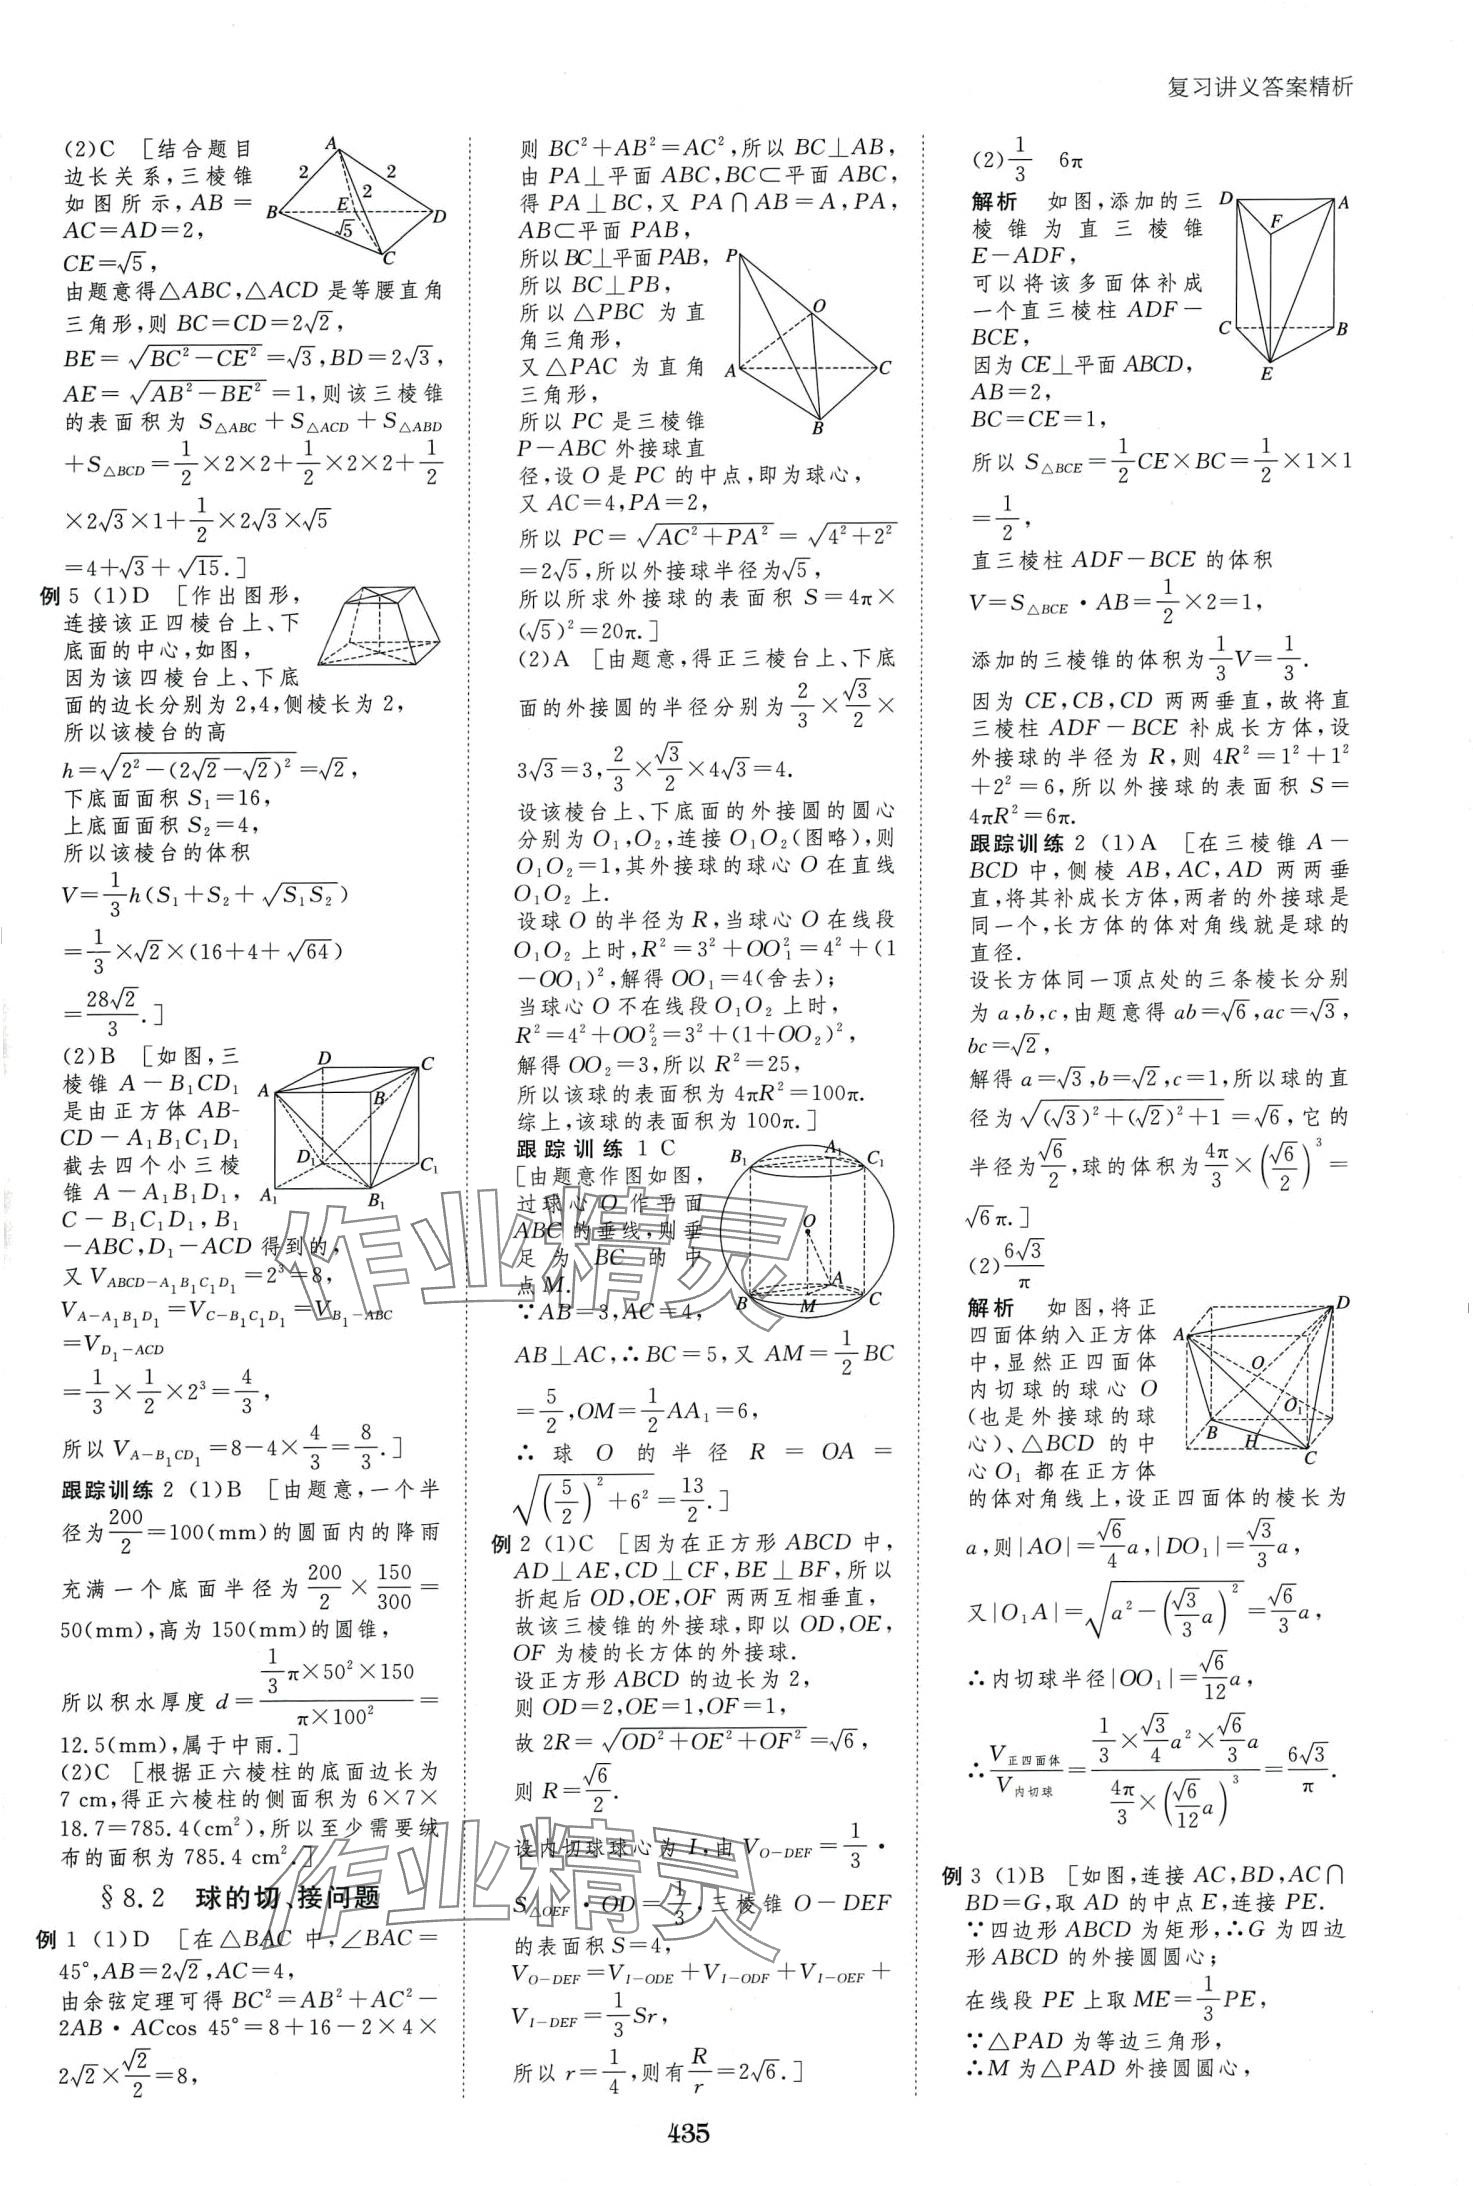 复习讲义答案精析
(2)C [结合题目
边长关系,三棱锥
如图所示,AB=
AC=AD=2,
CE=√5,
由题意得△ABC,△ACD是等腰直角
三角形,则BC=CD=2√2,
BE=√(BC²-CE²)=√3,BD=2√3,
AE=√(AB²-BE²)=1,则该三棱锥
的表面积为S△ABC+S△ACD+S△ABD
+S△BCD=1/2×2×2+1/2×2×2+1/2
×2√3×1+1/2×2√3×√5
=4+√3+√15.]
例5 (1)D [作出图形,
连接该正四棱台上、下
底面的中心,如图,
因为该四棱台上、下底
面的边长分别为2,4,侧棱长为2,
所以该棱台的高
h=√(2²-(2√2-√2)²)=√2,
下底面面积S₁=16,
上底面面积S₂=4,
所以该棱台的体积
V=1/3h(S₁+S₂+√(S₁S₂))
=1/3×√2×(16+4+√64)
=28√2/3.]
(2)B [如图,三
棱锥A-B₁CD₁
是由正方体AB-
CD-A₁B₁C₁D₁
截去四个小三棱
锥A-A₁B₁D₁,
C-B₁C₁D₁,B₁
-ABC,D₁-ACD得到的,
又V_{ABCD-A₁B₁C₁D₁}=2³=8,
V_{A-A₁B₁D₁}=V_{C-B₁C₁D₁}=V_{B₁-ABC}
=V_{D₁-ACD}
=1/3×1/2×2³=4/3,
所以V_{A-B₁CD₁}=8-4×4/3=8/3.]
跟踪训练2 (1)B [由题意,一个半
径为200/2=100(mm)的圆面内的降雨
充满一个底面半径为200/2×150/300=
50(mm),高为150(mm)的圆锥,
所以积水厚度d=(1/3π×50²×150)/(π×100²)=
12.5(mm),属于中雨.]
(2)C [根据正六棱柱的底面边长为
7 cm,得正六棱柱的侧面积为6×7×
18.7=785.4(cm²),所以至少需要绒
布的面积为785.4 cm².]
§8.2 球的切、接问题
例1 (1)D [在△BAC中,∠BAC=
45°,AB=2√2,AC=4,
由余弦定理可得BC²=AB²+AC²-
2AB·ACcos 45°=8+16-2×4×
2√2×√2/2=8,
则BC²+AB²=AC²,所以BC⊥AB,
由PA⊥平面ABC,BC⊂平面ABC,
得PA⊥BC,又PA∩AB=A,PA,
AB⊂平面PAB,
所以BC⊥平面PAB,
所以BC⊥PB,
所以△PBC为直
角三角形,
又△PAC为直角
三角形,
所以PC是三棱锥
P-ABC外接球直
径,设O是PC的中点,即为球心,
又AC=4,PA=2,
所以PC=√(AC²+PA²)=√(4²+2²)
=2√5,所以外接球半径为√5,
所以所求外接球的表面积S=4π×
(√5)²=20π.]
(2)A [由题意,得正三棱台上、下底
面的外接圆的半径分别为2/3×√3/2×
3√3=3,2/3×√3/2×4√3=4.
设该棱台上、下底面的外接圆的圆心
分别为O₁,O₂,连接O₁O₂(图略),则
O₁O₂=1,其外接球的球心O在直线
O₁O₂上.
设球O的半径为R,当球心O在线段
O₁O₂上时,R²=3²+OO₁²=4²+(1
-OO₁)²,解得OO₁=4(舍去);
当球心O不在线段O₁O₂上时,
R²=4²+OO₂²=3²+(1+OO₂)²,
解得OO₂=3,所以R²=25,
所以该球的表面积为4πR²=100π.
综上,该球的表面积为100π.]
跟踪训练1 C
[由题意作图如图,
过球心O作平面
ABC的垂线,则垂
足为BC的中
点M.
∵AB=3,AC=4,
AB⊥AC,∴BC=5,又AM=1/2BC
=5/2,OM=1/2AA₁=6,
∴球O的半径R=OA=
√((5/2)²+6²)=13/2.]
例2 (1)C [因为在正方形ABCD中,
AD⊥AE,CD⊥CF,BE⊥BF,所以
折起后OD,OE,OF两两互相垂直,
故该三棱锥的外接球,即以OD,OE,
OF为棱的长方体的外接球.
设正方形ABCD的边长为2,
则OD=2,OE=1,OF=1,
故2R=√(OD²+OE²+OF²)=√6,
则R=√6/2.
设内切球球心为I,由V_{O-DEF}=1/3·
S△OEF·OD=1/3,三棱锥O-DEF
的表面积S=4,
V_{O-DEF}=V_{I-ODE}+V_{I-ODF}+V_{I-OEF}+
V_{I-DEF}=1/3Sr,
所以r=1/4,则有R/r=2√6.]
(2)1/3 6π
解析 如图,添加的三
棱锥为直三棱锥
E-ADF,
可以将该多面体补成
一个直三棱柱ADF-
BCE,
因为CE⊥平面ABCD,
AB=2,
BC=CE=1,
所以S△BCE=1/2CE×BC=1/2×1×1
=1/2,
直三棱柱ADF-BCE的体积
V=S△BCE·AB=1/2×2=1,
添加的三棱锥的体积为1/3V=1/3.
因为CE,CB,CD两两垂直,故将直
三棱柱ADF-BCE补成长方体,设
外接球的半径为R,则4R²=1²+1²
+2²=6,所以外接球的表面积S=
4πR²=6π.
跟踪训练2 (1)A [在三棱锥A-
BCD中,侧棱AB,AC,AD两两垂
直,将其补成长方体,两者的外接球是
同一个,长方体的体对角线就是球的
直径.
设长方体同一顶点处的三条棱长分别
为a,b,c,由题意得ab=√6,ac=√3,
bc=√2,
解得a=√3,b=√2,c=1,所以球的直
径为√((√3)²+(√2)²+1)=√6,它的
半径为√6/2,球的体积为4π/3×(√6/2)³=
√6π.]
(2)6√3/π
解析 如图,将正
四面体纳入正方体
中,显然正四面体
内切球的球心O
(也是外接球的球
心)、△BCD的中
心O₁都在正方体
的体对角线上,设正四面体的棱长为
a,则|AO|=√6/4a,|DO₁|=√3/3a,
又|O₁A|=√(a²-(√3/3a)²)=√6/3a,
∴内切球半径|OO₁|=√6/12a,
∴V正四面体/V内切球=(1/3×√3/4a²×√6/3a)/(4π/3×(√6/12a)³)=6√3/π.
例3 (1)B [如图,连接AC,BD,AC∩
BD=G,取AD的中点E,连接PE.
∵四边形ABCD为矩形,∴G为四边
形ABCD的外接圆圆心;
在线段PE上取ME=1/3PE,
∵△PAD为等边三角形,
∴M为△PAD外接圆圆心,
435
作业精灵
作业精灵